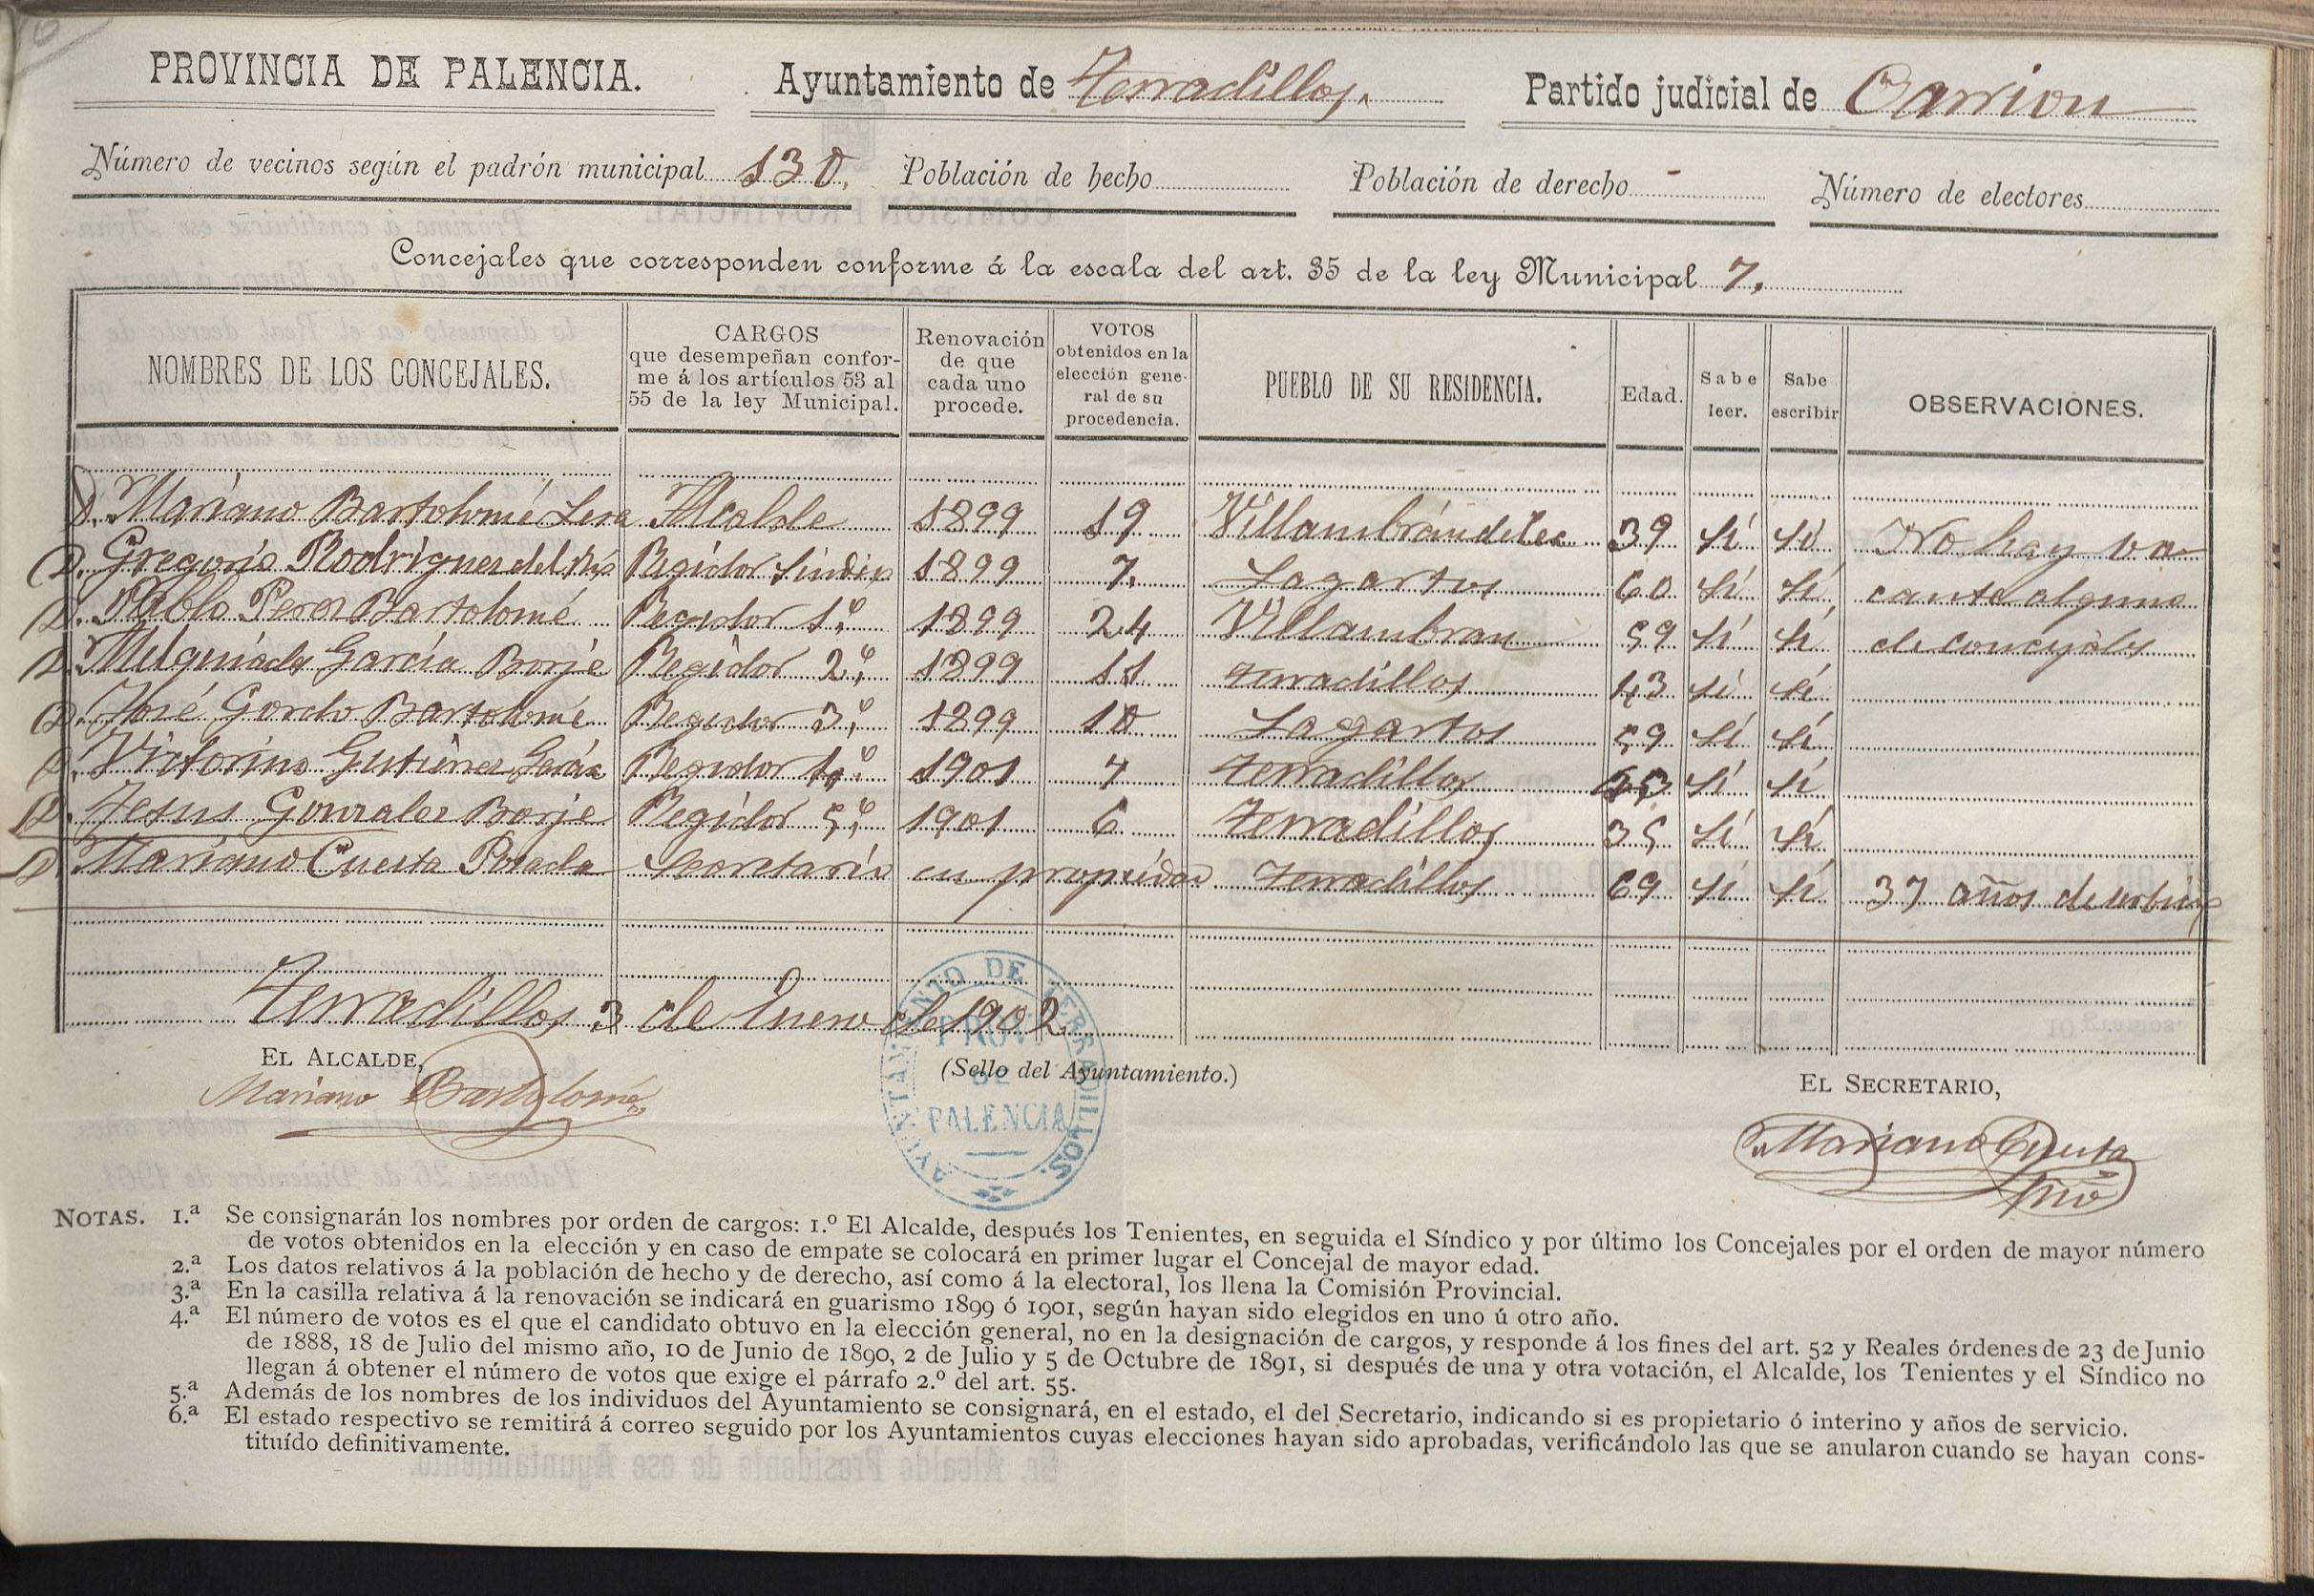 PROVINCIA DE PALENCIA. Ayuntamiento de Terradillos. Partido judicial de Carrion
Número de vecinos según el padrón municipal 130. Población de hecho Población de derecho - Número de electores
Concejales que corresponden conforme á la escala del art. 35 de la ley Municipal 7.
NOMBRES DE LOS CONCEJALES. CARGOS que desempeñan conforme á los artículos 53 al 55 de la ley Municipal. Renovación de que cada uno procede. VOTOS obtenidos en la elección general de su procedencia. PUEBLO DE SU RESIDENCIA. Edad. Sabe leer. Sabe escribir OBSERVACIONES.
D. Mariano Bartolomé Lera Alcalde 1899 19 39 sí sí No hay va-
D. Gregorio Rodriguez del Regidor Sindix 1899 7. Lagartos 60 sí sí cante alguna
D. Pablo Perez Bartolomé Regidor 1º 1899 24 Villambran 59 sí sí de concejales
D. Melquiades García Borje Regidor 2º 1899 11 Terradillos 43 sí sí
D. José Gordo Bartolomé Regidor 3º 1899 10 Lagartos 59 sí sí
D. Victorino Gutierrez García Regidor 4º 1901 7 Terradillos sí sí
D. Jesus Gonzalez Borje Regidor 5º 1901 6 Terradillos 35 sí sí
D. Mariano Cuesta Posada Secretario en propiedad Terradillos 69 sí sí 37 años de serbicio
Terradillos 3 de Enero de 1902
EL ALCALDE,
Mariano Bartolomé
(Sello del Ayuntamiento.)
AYUNTAMIENTO DE TERRADILLOS.
PROV.
DE
PALENCIA
EL SECRETARIO,
Mariano Cuesta
NOTAS. 1.ª Se consignarán los nombres por orden de cargos: 1.º El Alcalde, después los Tenientes, en seguida el Síndico y por último los Concejales por el orden de mayor número
de votos obtenidos en la elección y en caso de empate se colocará en primer lugar el Concejal de mayor edad.
2.ª Los datos relativos á la población de hecho y de derecho, así como á la electoral, los llena la Comisión Provincial.
3.ª En la casilla relativa á la renovación se indicará en guarismo 1899 ó 1901, según hayan sido elegidos en uno ú otro año.
4.ª El número de votos es el que el candidato obtuvo en la elección general, no en la designación de cargos, y responde á los fines del art. 52 y Reales órdenes de 23 de Junio
de 1888, 18 de Julio del mismo año, 10 de Junio de 1890, 2 de Julio y 5 de Octubre de 1891, si después de una y otra votación, el Alcalde, los Tenientes y el Síndico no
llegan á obtener el número de votos que exige el párrafo 2.º del art. 55.
5.ª Además de los nombres de los individuos del Ayuntamiento se consignará, en el estado, el del Secretario, indicando si es propietario ó interino y años de servicio.
6.ª El estado respectivo se remitirá á correo seguido por los Ayuntamientos cuyas elecciones hayan sido aprobadas, verificándolo las que se anularon cuando se hayan cons-
tituído definitivamente.